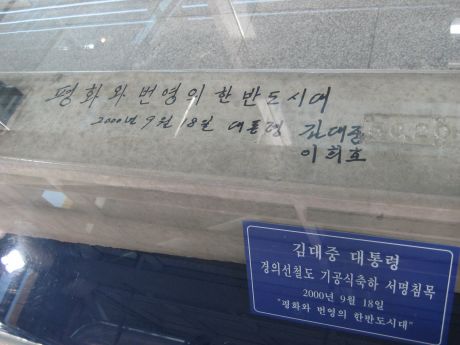 평화와 번영의 한반도시대
2000년 9월 18일 대통령 김대중
이희호
김대중 대통령
경의선철도 기공식축하 서명침목
2000년 9월 18일
"평화와 번영의 한반도시대"